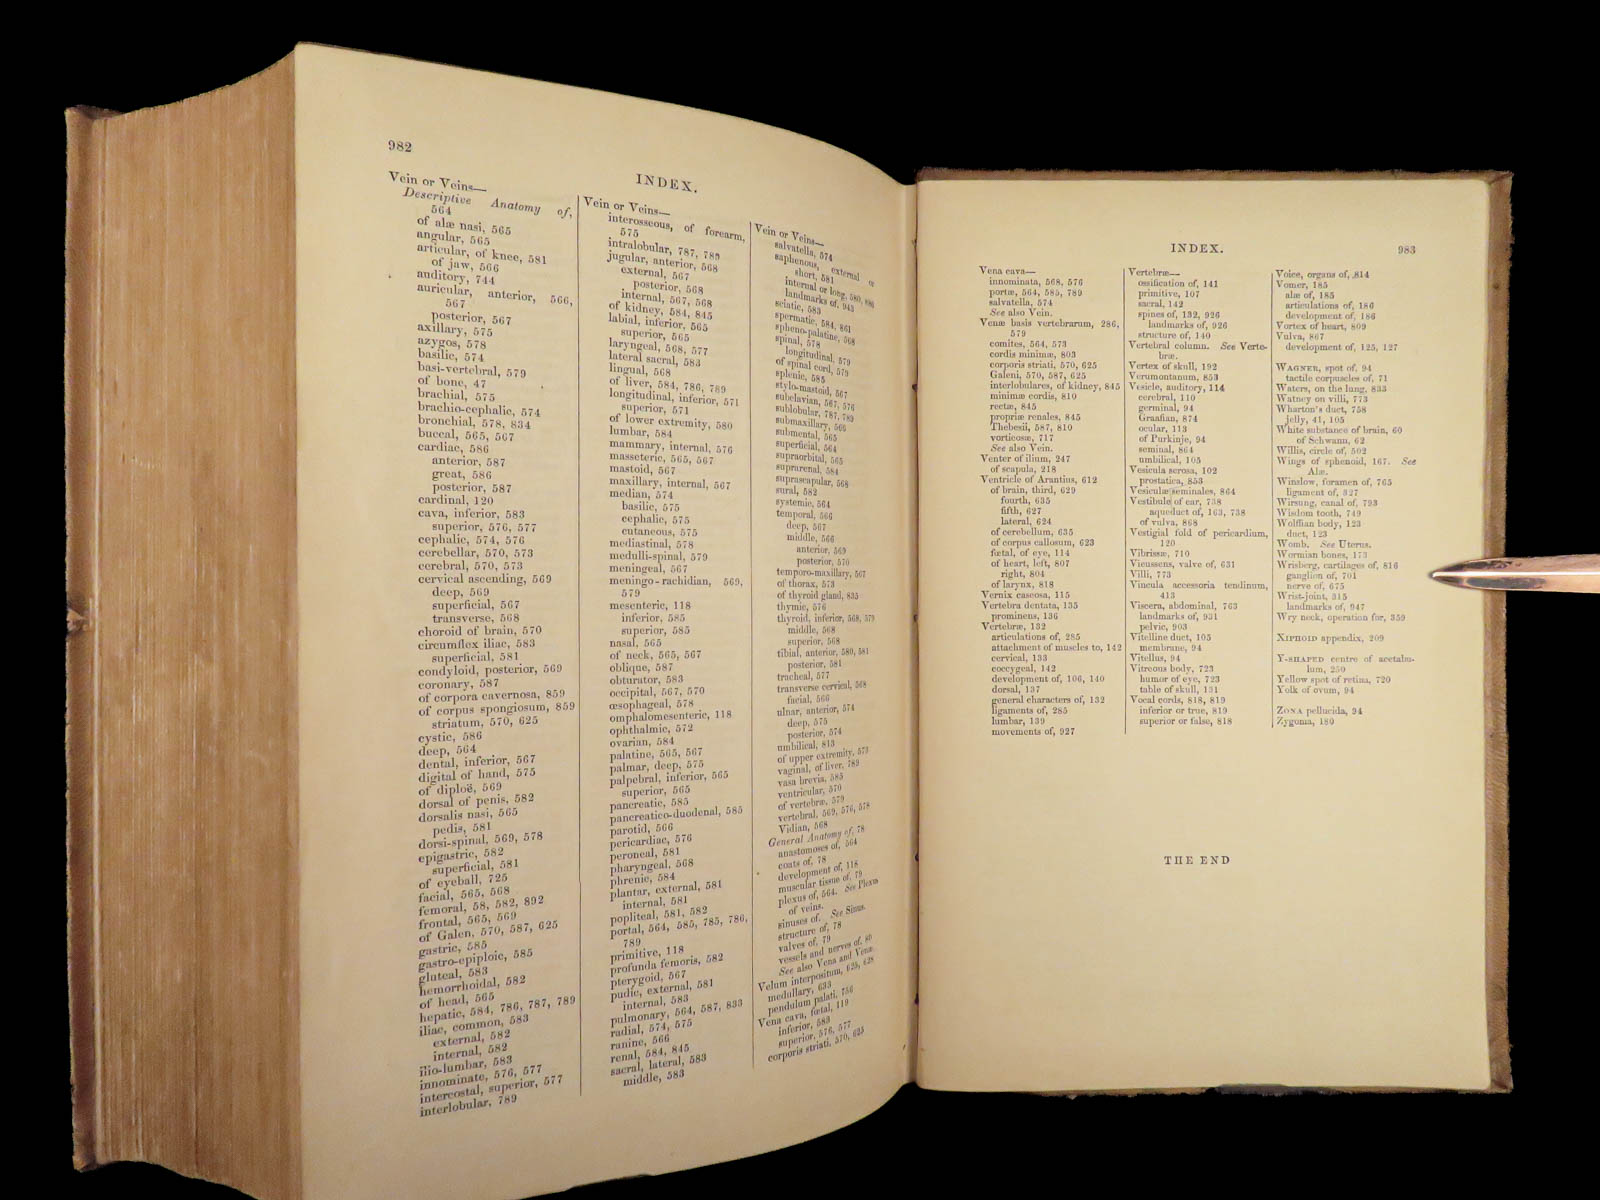 982
INDEX.
Vein or Veins—
Descriptive Anatomy of,
564
of alæ nasi, 565
angular, 565
articular, of knee, 581
of jaw, 566
auditory, 744
auricular, anterior, 566,
567
posterior, 567
axillary, 575
azygos, 578
basilic, 574
basi-vertebral, 579
of bone, 47
brachial, 575
brachio-cephalic, 574
bronchial, 578, 834
buccal, 565, 567
cardiac, 586
anterior, 587
great, 586
posterior, 587
cardinal, 120
cava, inferior, 583
superior, 576, 577
cephalic, 574, 576
cerebellar, 570, 573
cerebral, 570, 573
cervical ascending, 569
deep, 569
superficial, 567
transverse, 568
choroid of brain, 570
circumflex iliac, 583
superficial, 581
condyloid, posterior, 569
coronary, 587
of corpora cavernosa, 859
of corpus spongiosum, 859
striatum, 570, 625
cystic, 586
deep, 564
dental, inferior, 567
digital of hand, 575
of diploë, 569
dorsal of penis, 582
dorsalis nasi, 565
pedis, 581
dorsi-spinal, 569, 578
epigastric, 582
superficial, 581
of eyeball, 725
facial, 565, 568
femoral, 58, 582, 892
frontal, 565, 569
of Galen, 570, 587, 625
gastric, 585
gastro-epiploic, 585
gluteal, 583
hemorrhoidal, 582
of head, 565
hepatic, 584, 786, 787, 789
iliac, common, 583
external, 582
internal, 582
ilio-lumbar, 583
innominate, 576, 577
intercostal, superior, 577
interlobular, 789
Vein or Veins—
interosseous, of forearm,
575
intralobular, 787, 789
jugular, anterior, 568
external, 567
posterior, 568
internal, 567, 568
of kidney, 584, 845
labial, inferior, 565
superior, 565
laryngeal, 568, 577
lateral sacral, 583
lingual, 568
of liver, 584, 786, 789
longitudinal, inferior, 571
superior, 571
of lower extremity, 580
lumbar, 584
mammary, internal, 576
masseteric, 565, 567
mastoid, 567
maxillary, internal, 567
median, 574
basilic, 575
cephalic, 575
cutaneous, 575
mediastinal, 578
medulli-spinal, 579
meningeal, 567
meningo-rachidian, 569,
579
mesenteric, 118
inferior, 585
superior, 585
nasal, 565
of neck, 565, 567
oblique, 587
obturator, 583
occipital, 567, 570
œsophageal, 578
omphalomesenteric, 118
ophthalmic, 572
ovarian, 584
palatine, 565, 567
palmar, deep, 575
palpebral, inferior, 565
superior, 565
pancreatic, 585
pancreatico-duodenal, 585
parotid, 566
pericardiac, 576
peroneal, 581
pharyngeal, 568
phrenic, 584
plantar, external, 581
internal, 581
popliteal, 581, 582
portal, 564, 585, 785, 786,
789
primitive, 118
profunda femoris, 582
pterygoid, 567
pudic, external, 581
internal, 583
pulmonary, 564, 587, 833
radial, 574, 575
ranine, 566
renal, 584, 845
sacral, lateral, 583
middle, 583
Vein or Veins—
salvatella, 574
saphenous, external or
short, 581
internal or long, 580,
landmarks of, 943
sciatic, 583
spermatic, 584, 861
spheno-palatine, 568
spinal, 578
longitudinal, 579
of spinal cord, 579
splenic, 585
stylo-mastoid, 567
subclavian, 567, 576
sublobular, 787, 789
submaxillary, 566
submental, 565
superficial, 564
supraorbital, 565
suprarenal, 584
suprascapular, 568
sural, 582
systemic, 564
temporal, 566
deep, 567
middle, 566
anterior, 569
posterior, 570
temporo-maxillary, 567
of thorax, 573
of thyroid gland, 835
thymic, 576
thyroid, inferior, 568, 579
middle, 568
superior, 568
tibial, anterior, 580, 581
posterior, 581
tracheal, 577
transverse cervical, 568
facial, 566
ulnar, anterior, 574
deep, 575
posterior, 574
umbilical, 813
of upper extremity, 573
vaginal, of liver, 789
vasa brevia, 585
ventricular, 570
of vertebræ, 579
vertebral, 569, 576, 578
Vidian, 568
General Anatomy of, 78
anastomoses of, 564
coats of, 78
development of, 118
muscular tissue of, 79
plexus of, 564. See Plexus
of veins.
sinuses of. See Sinus.
structure of, 78
valves of, 79
vessels and nerves of, 80
See also Vena and Venæ.
Velum interpositum, 625, 628
medullary, 633
pendulum palati, 756
Vena cava, fœtal, 119
inferior, 583
superior, 576, 577
corporis striati, 570, 625
INDEX.
983
Vena cava—
innominata, 568, 576
portæ, 564, 585, 789
salvatella, 574
See also Vein.
Venæ basis vertebrarum, 286,
579
comites, 564, 573
cordis minimæ, 803
corporis striati, 570, 625
Galeni, 570, 587, 625
interlobulares, of kidney, 845
minimæ cordis, 810
rectæ, 845
propriæ renales, 845
Thebesii, 587, 810
vorticosæ, 717
See also Vein.
Venter of ilium, 247
of scapula, 218
Ventricle of Arantius, 612
of brain, third, 629
fourth, 635
fifth, 627
lateral, 624
of cerebellum, 635
of corpus callosum, 623
fœtal, of eye, 114
of heart, left, 807
right, 804
of larynx, 818
Vernix caseosa, 115
Vertebra dentata, 135
prominens, 136
Vertebræ, 132
articulations of, 285
attachment of muscles to, 142
cervical, 133
coccygeal, 142
development of, 106, 140
dorsal, 137
general characters of, 132
ligaments of, 285
lumbar, 139
movements of, 927
Vertebræ—
ossification of, 141
primitive, 107
sacral, 142
spines of, 132, 926
landmarks of, 926
structure of, 140
Vertebral column. See Verte-
bræ.
Vertex of skull, 192
Verumontanum, 853
Vesicle, auditory, 114
cerebral, 110
germinal, 94
Graafian, 874
ocular, 113
of Purkinje, 94
seminal, 864
umbilical, 105
Vesicula serosa, 102
prostatica, 853
Vesiculæ seminales, 864
Vestibule of ear, 738
aqueduct of, 163, 738
of vulva, 868
Vestigial fold of pericardium,
120
Vibrissæ, 710
Vieussens, valve of, 631
Villi, 773
Vincula accessoria tendinum,
413
Viscera, abdominal, 763
landmarks of, 931
pelvic, 903
Vitelline duct, 105
membrane, 94
Vitellus, 94
Vitreous body, 723
humor of eye, 723
table of skull, 131
Vocal cords, 818, 819
inferior or true, 819
superior or false, 818
Voice, organs of, 814
Vomer, 185
alæ of, 185
articulations of, 186
development of, 186
Vortex of heart, 809
Vulva, 867
development of, 125, 127
WAGNER, spot of, 94
tactile corpuscles of, 71
Waters, on the lung, 833
Watney on villi, 773
Wharton's duct, 758
jelly, 41, 105
White substance of brain, 60
of Schwann, 62
Willis, circle of, 502
Wings of sphenoid, 167. See
Alæ.
Winslow, foramen of, 765
ligament of, 327
Wirsung, canal of, 793
Wisdom tooth, 749
Wolffian body, 123
duct, 123
Womb. See Uterus.
Wormian bones, 173
Wrisberg, cartilages of, 816
ganglion of, 701
nerve of, 675
Wrist-joint, 315
landmarks of, 947
Wry neck, operation for, 359
XIPHOID appendix, 209
Y-SHAPED centre of acetabu-
lum, 250
Yellow spot of retina, 720
Yolk of ovum, 94
ZONA pellucida, 94
Zygoma, 180
THE END